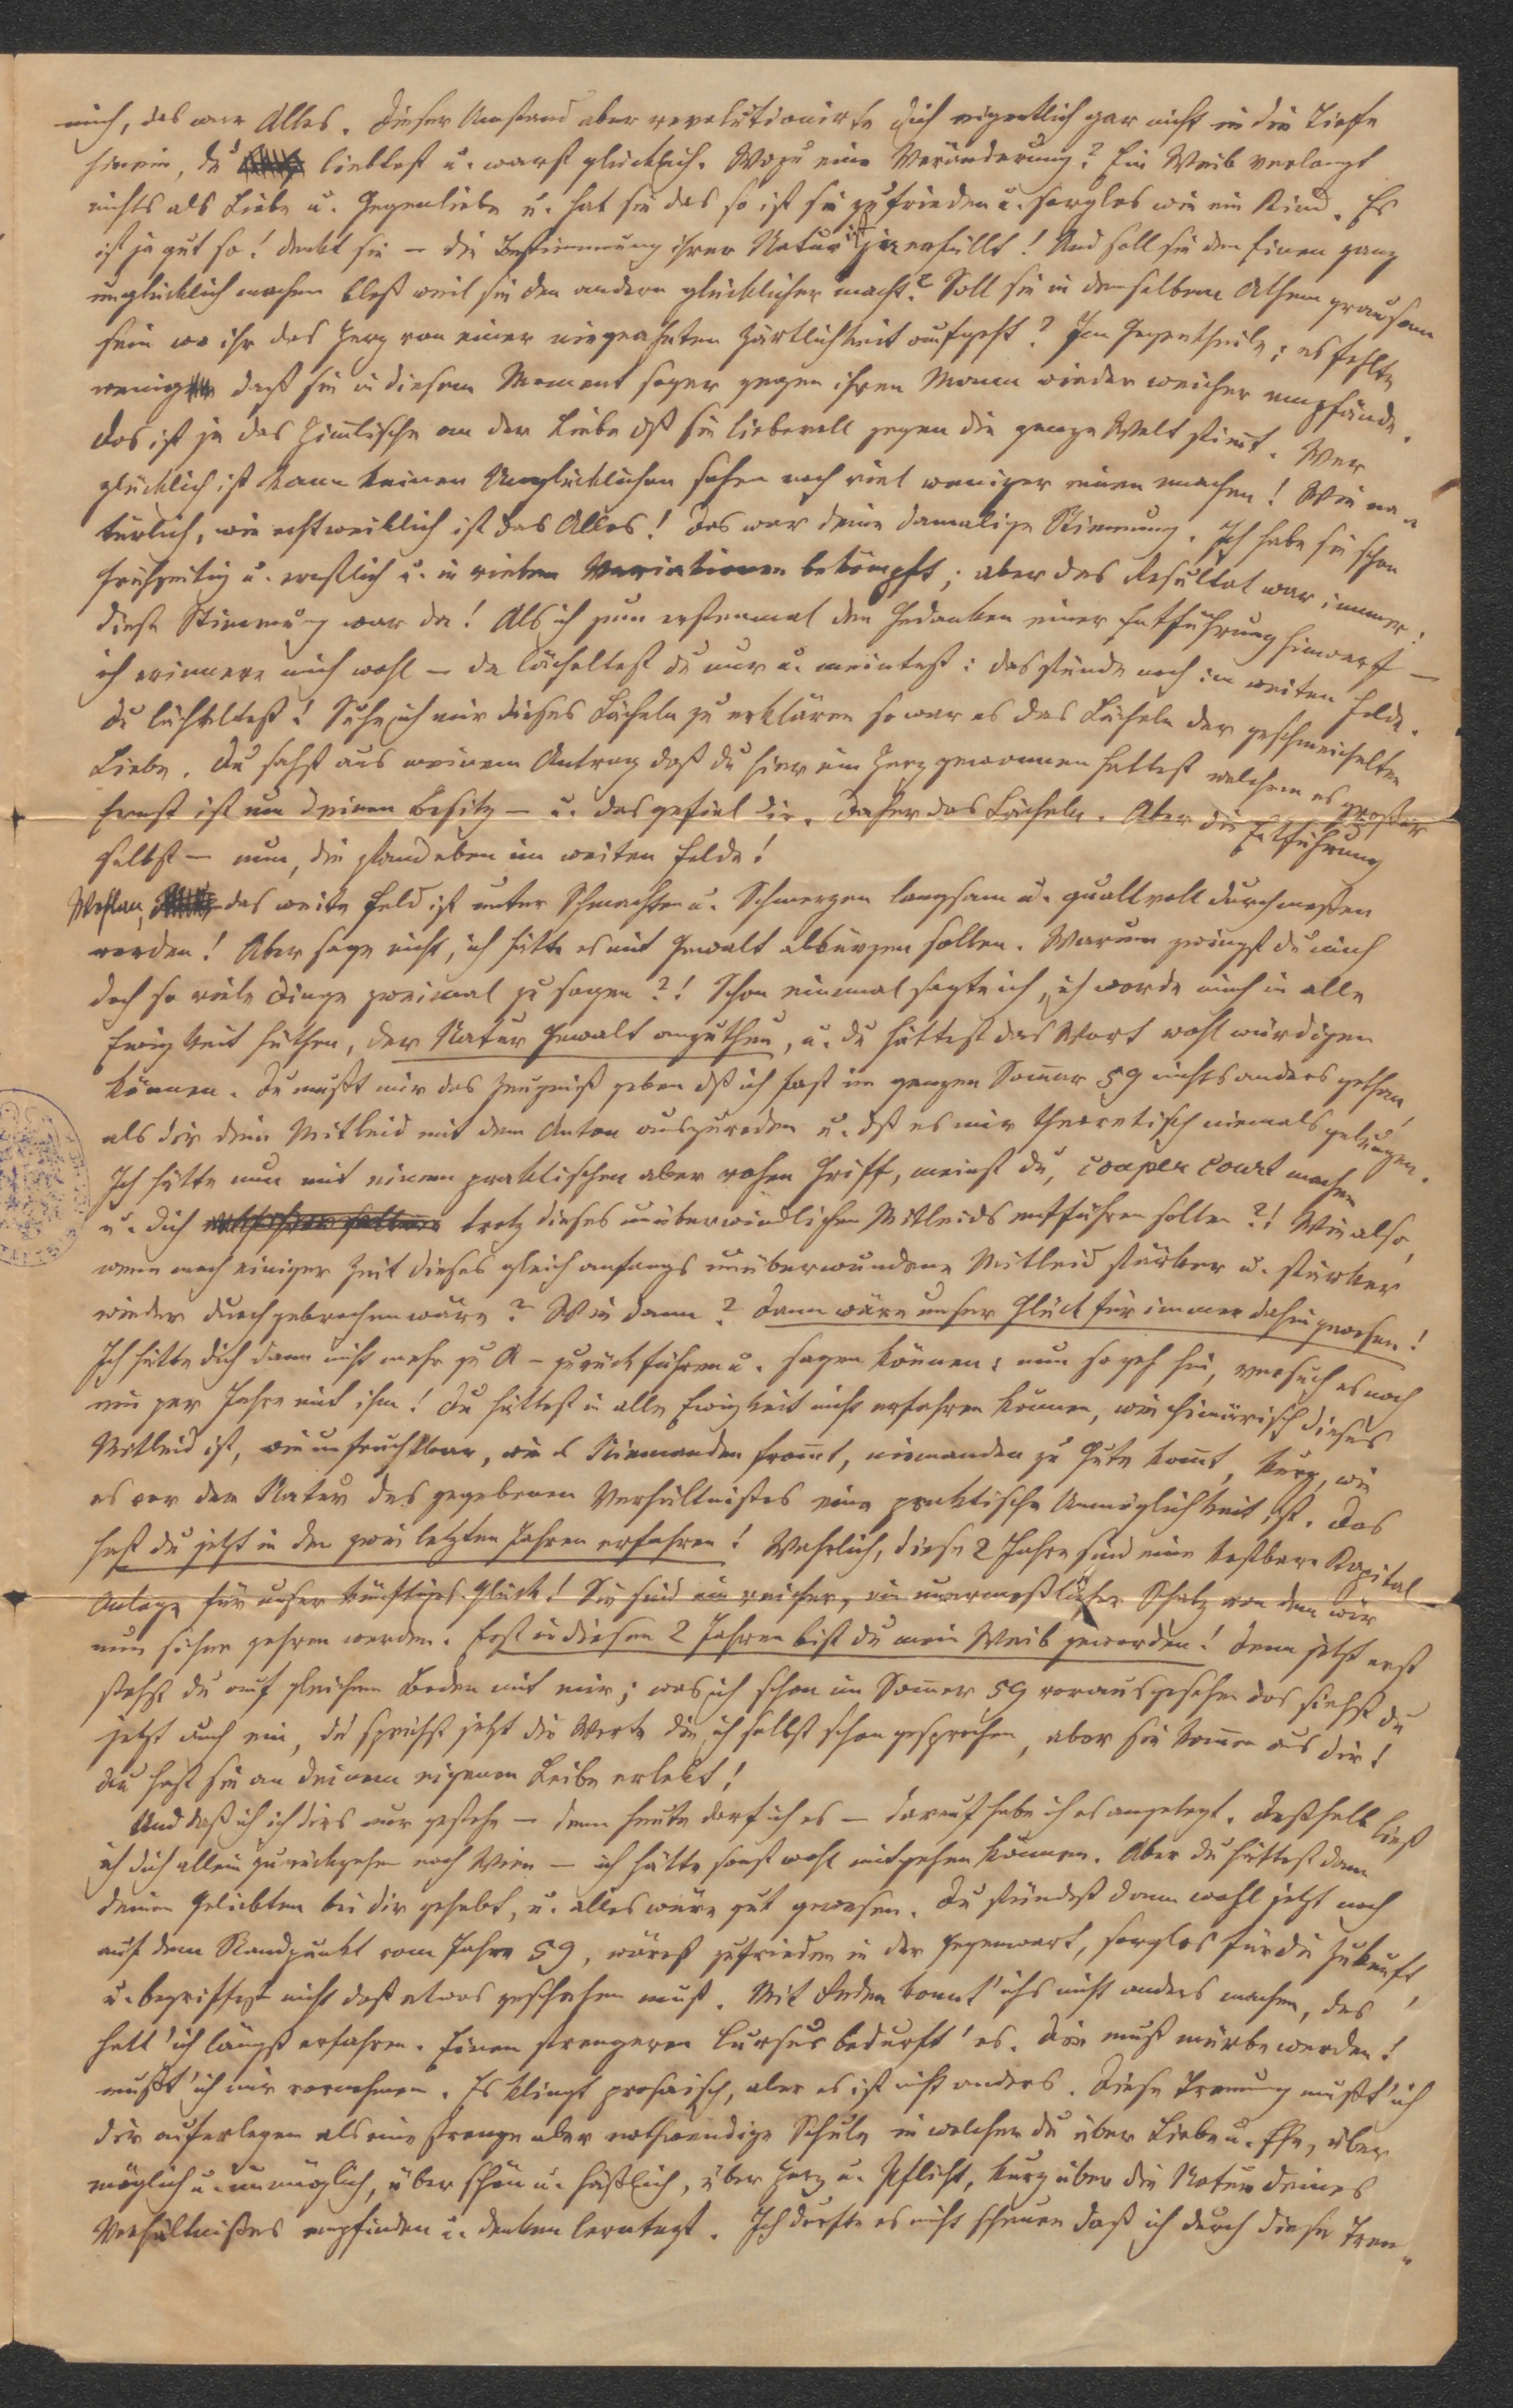 mich, das war Alles. Dieser Umstand aber revolutionirte dich eigentlich gar nicht in die Tiefe
hinein, du liebtest u. warst glücklich. Wozu eine Veränderung? Ein Weib verlangt
nichts als Liebe u. Gegenliebe u. hat sie das so ist sie zufrieden u. sorglos wie ein Kind. Es
ist ja gut so! denkt sie – die Bestimmung ihrer Natur ist ja erfüllt! Und soll sie den Einen ganz
unglücklich machen bloß weil sie den andern glücklicher macht? Soll sie in demselben Athem grausam
sein wo ihr das Herz von einer niegeahnten Zärtlichkeit aufgeht? Im Gegentheile; es fehlte
wenig daß sie in diesem Moment sogar gegen ihren Mann wieder weicher empfände.
Das ist ja das Himlische an der Liebe dß sie liebevoll gegen die ganze Welt stimt. Wer
glücklich ist kann keinen Unglücklichen sehen noch viel weniger einen machen! Wie na-
türlich, wie echtweiblich ist das Alles! Das war deine damalige Stimmung. Ich habe sie schon
frühzeitig u. ernstlich u. in vielen Variationen bekämpft; aber das Resultat war immer:
diese Stimmung war da! Als ich zum erstenmal den Gedanken einer Entführung hinwarf –
ich erinnere mich wohl – da lächeltest du nur u. meintest: das stünde noch im weiten Felde.
Du lächeltest! Suche ich mir dieses Lächeln zu erklären so war es das Lächeln der geschmeichelten
Liebe. Du sahst aus meinem Antrag daß du hier ein Herz gewonnen hattest welchem es großer
Ernst ist um deinen Besitz – u. das gefiel dir. Daher das Lächeln. Aber die Entführung
selbst – nun, die stand eben im weiten Felde!
Wohlan, das weite Feld ist unter Schmachten u. Schmerzen langsam u. quallvoll durchmeßen
worden! Aber sage nicht, ich hätte es mit Gewalt abkürzen sollen. Warum zwingst du mich
doch so viele Dinge zweimal zu sagen?! Schon einmal sagte ich, ich werde mich in alle
Ewigkeit hüthen, der Natur Gewalt anzuthun, u. du hättest das Wort wohl würdigen
können. Du mußt mir das Zeugniß geben dß ich fast im ganzen Somer 59 nichts anders gethan,
als dir dein Mitleid mit dem Anton auszureden u. dß es mir theoretisch niemals gelungen.
Ich hätte nun mit einem praktischen aber rohen Griff, meinst du, couper court machen
u. dich trotz dieses unüberwindlichen Mitleids entführen sollen?! Wie also,
wenn nach einiger Zeit dieses gleich anfangs unüberwundene Mitleid stärker u. stärker
wieder durchgebrochen wäre? Wie dann? Dann wäre unser Glück für immer dahin gewesen!
Ich hätte dich dann nicht mehr zu A – zurückführen u. sagen können: nun so geh hin, versuch es noch
ein par Jahre mit ihm! Du hättest in alle Ewigkeit nicht erfahren können, wie chimärisch dieses
Mitleid ist, wie unfruchtbar, wie es Niemanden fromt, niemanden zu Gute komt, kurz, wie
es vor der Natur des gegebenen Verhältnißes eine praktische Unmöglichkeit ist. Das
hast du jetzt in den zwei letzten Jahren erfahren! Wahrlich, diese 2 Jahre sind eine kostbare Kapital-
Anlage für unser künftiges Glück! Sie sind ein reicher, ein unermeßlicher Schatz von dem wir
nun sicher zehren werden. Erst in diesen 2 Jahren bist du mein Weib geworden! Denn jetzt erst
stehst du auf gleichem Boden mit mir; was ich schon im Somer 59 vorausgesehen das siehst du
jetzt auch ein, du sprichst jetzt die Worte die ich selbst schon gesprochen, aber sie komen aus dir!
Du hast sie an deinem eigenen Leibe erlebt!
Und daß ich ich dirs nur gestehe – denn heute darf ich es – darauf habe ich es angelegt. Deßhalb ließ
ich dich allein zurückgehen nach Wien – ich hätte sonst wohl mitgehen können. Aber du hättest dann
deinen Geliebten bei dir gehabt, u. alles wäre gut gewesen. Du stündest dann wohl jetzt noch
auf dem Standpunkt vom Jahre 59, wärest zufrieden in der Gegenwart, sorglos für die Zukunft,
u. begriffest nicht daß etwas geschehen muß. Mit Reden konnt' ichs nicht anders machen, das
hatt' ich längst erfahren. Einen strengeren Cursus bedurft' es. Die muß mürbe werden!
mußt' ich mir vornehmen. Es klingt prosaisch, aber es ist nicht anders. Diese Trennung mußt' ich
dir auferlegen als eine strenge aber nothwendige Schule in welcher du über Liebe u. Ehe, über
möglich u. unmöglich, über schön u. häßlich, über Herz u. Pflicht, kurz über die Natur deines
Verhältnißes empfinden u. denken lerntest. Ich durfte es nicht scheuen daß ich durch diese Tren-